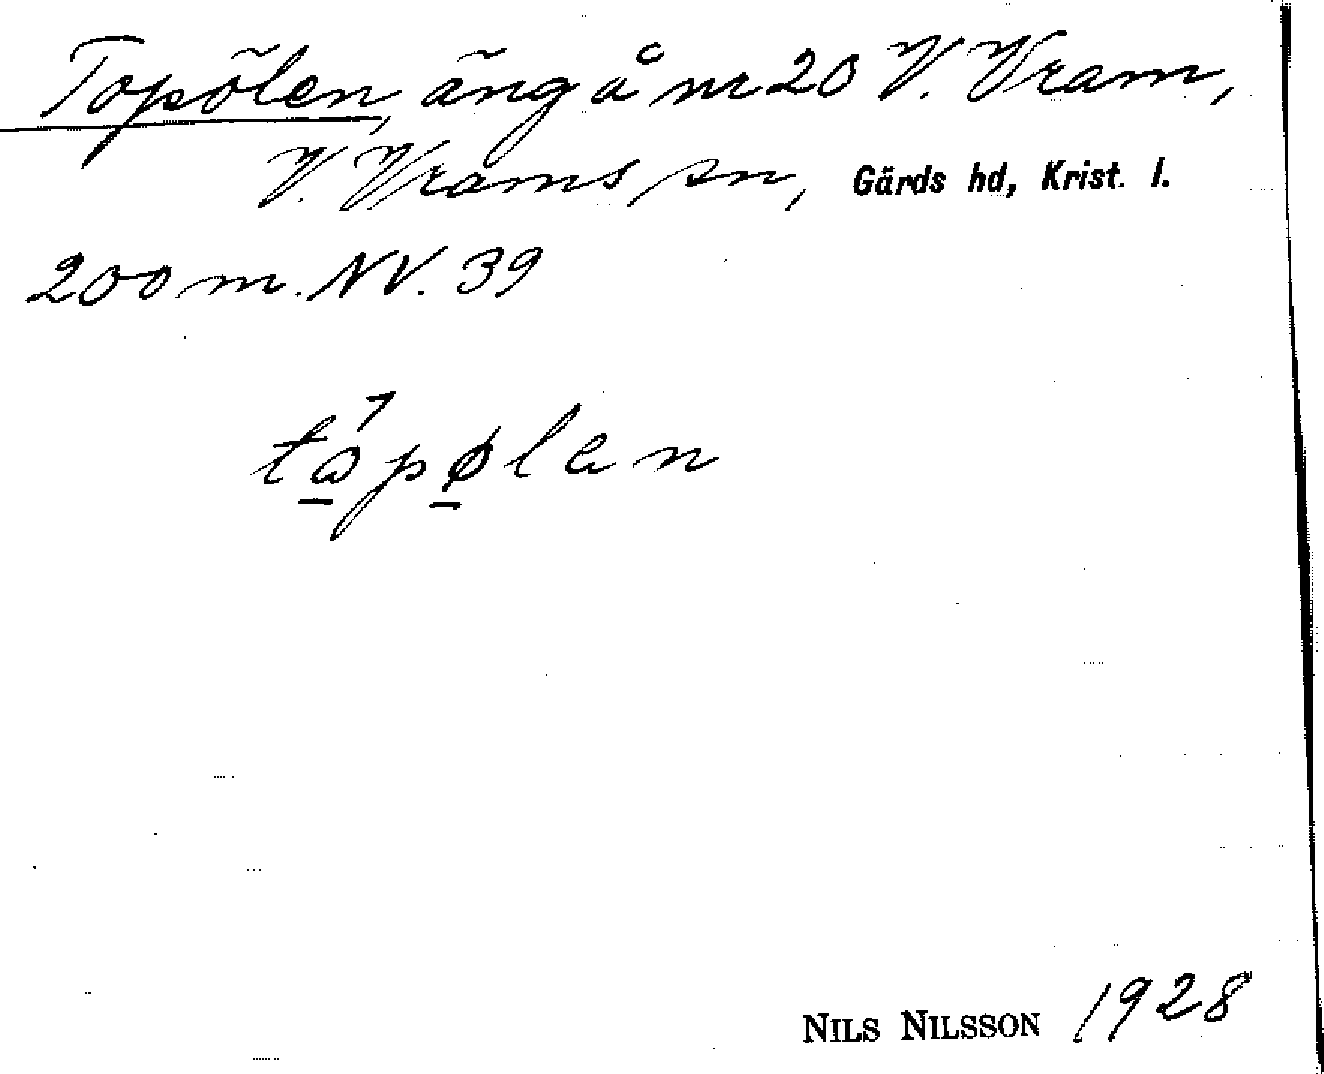 Topölen, äng å nr 20 V. Vram,
V. Vrams sn, Gärds hd, Krist. l.
200 m. NV. 39
tåpølen
NILS NILSSON 1928